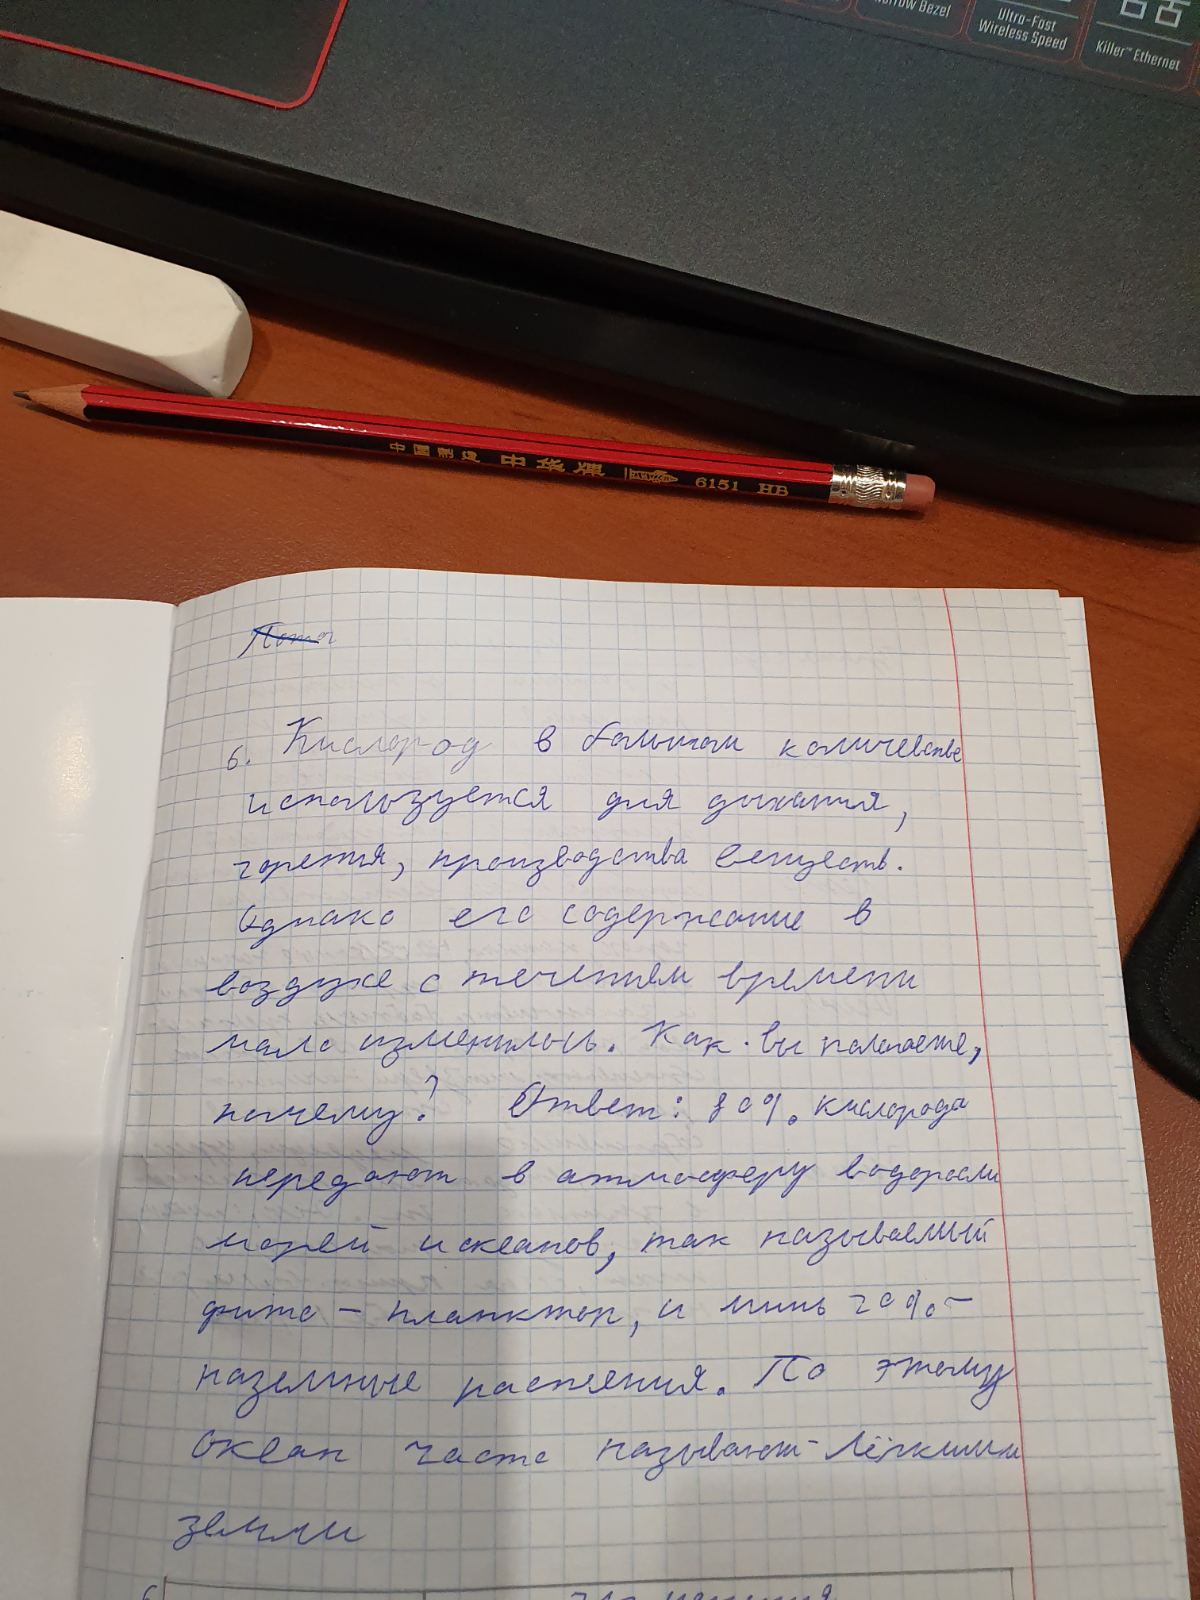 Narrow Bezel
Ultra-Fast
Wireless Speed
Killer™ Ethernet
中国制造 中华牌 6151 HB
6. Кислород в большом количестве
используется для дыхания,
горения, производства веществ.
Однако его содержание в
воздухе с течением времени
мало изменилось. Как вы полагаете,
почему? Ответ: 80% кислорода
передают в атмосферу водоросли
морей и океанов, так называемый
фито - планктон, и лишь 20% -
наземные растения. По этому
океан часто называют - Лёгкими
земли
6